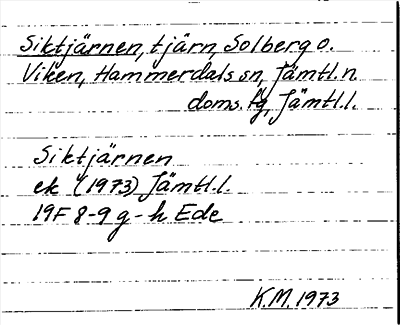 Siktjärnen, tjärn, Solberg o.
Viken, Hammerdals sn, Jämtl. n.
doms. fg, Jämtl. l.
Siktjärnen
ek (1973) Jämtl. l.
19F 8-9 g-h Ede
K.M. 1973